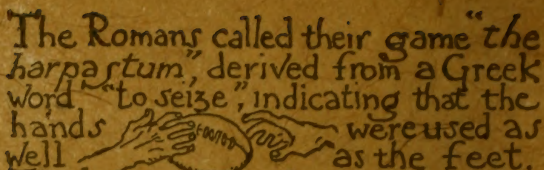 The Romans called their game "the
harpastum", derived from a Greek
word, "to seize", indicating that the
hands were used as
well as the feet.